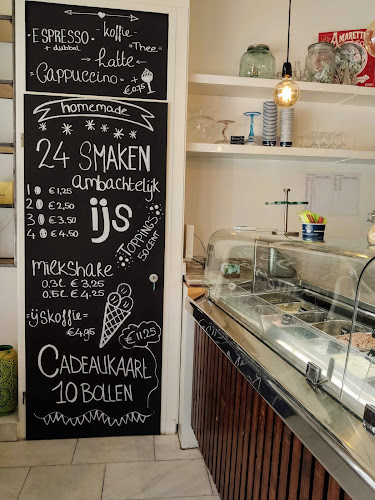 ESPRESSO
+ dubbel
koffie
Thee
Latte
Cappuccino
+
€0,75
homemade
24 SMAKEN
ambachtelijk
ijs
1 € 1,25
2 € 2,50
3 € 3.50
4 € 4.50
TOPPINGS
50CENT
milkshake
0,3L € 3.25
0,5L € 4.25
=ijskoffie=
€4,95
€11.25
CADEAUKAART
10 BOLLEN
AMARETTI